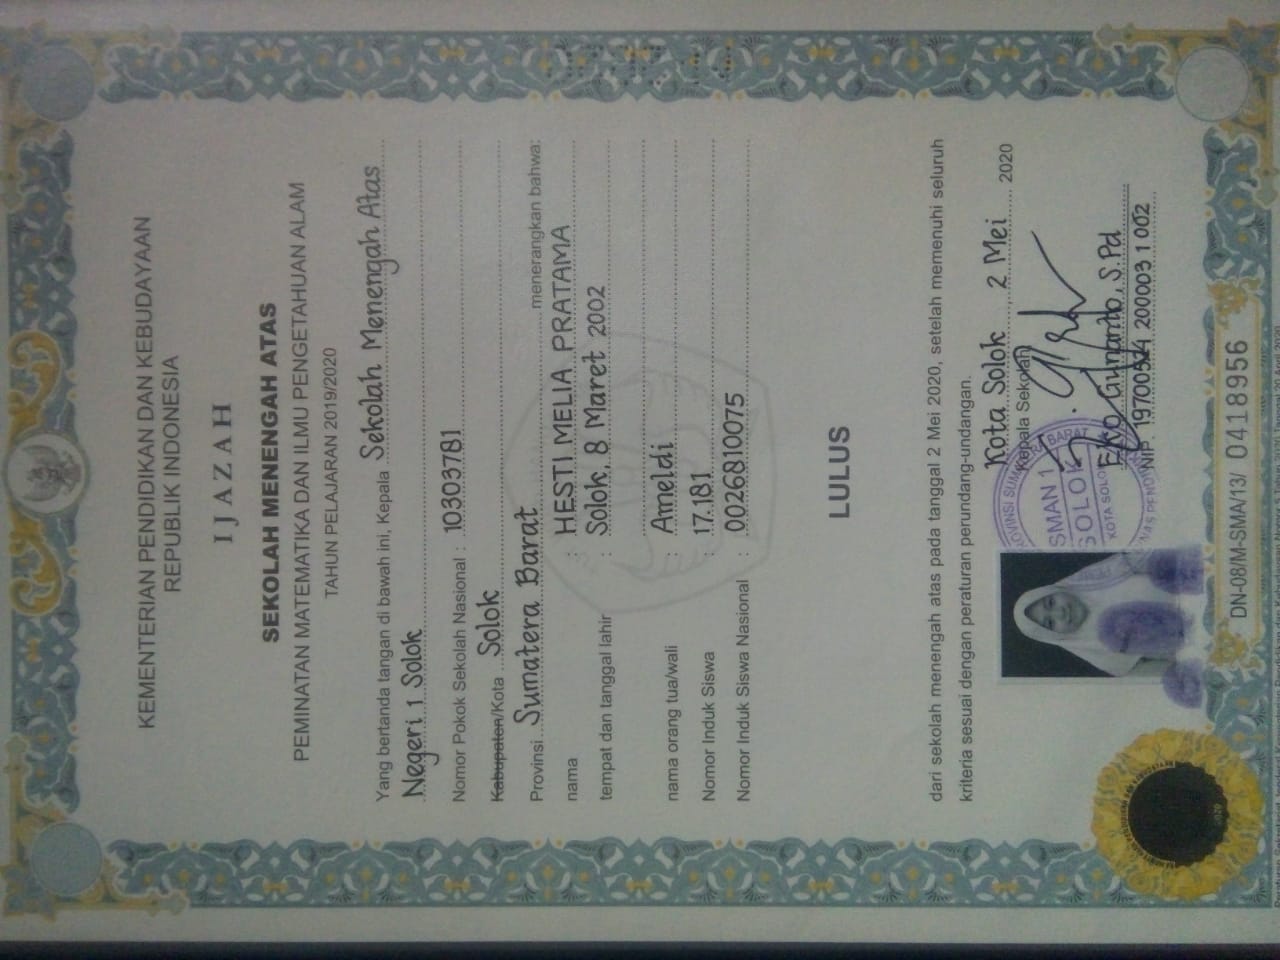 KEMENTERIAN PENDIDIKAN DAN KEBUDAYAAN
REPUBLIK INDONESIA
IJAZAH
SEKOLAH MENENGAH ATAS
PEMINATAN MATEMATIKA DAN ILMU PENGETAHUAN ALAM
TAHUN PELAJARAN 2019/2020
Yang bertanda tangan di bawah ini, Kepala Sekolah Menengah Atas
Negeri 1 Solok
Nomor Pokok Sekolah Nasional : 10303781
Kabupaten/Kota Solok
Provinsi Sumatera Barat menerangkan bahwa:
nama : HESTI MELIA PRATAMA
tempat dan tanggal lahir : Solok, 8 Maret 2002
nama orang tua/wali : Ameldi
Nomor Induk Siswa : 17.181
Nomor Induk Siswa Nasional : 0026810075
LULUS
dari sekolah menengah atas pada tanggal 2 Mei 2020, setelah memenuhi seluruh
kriteria sesuai dengan peraturan perundang-undangan.
Kota Solok, 2 Mei 2020
Kepala Sekolah
SMAN 1
SOLOK
KOTA SOLOK
Eko Gunardo, S.Pd
NIP. 19700524 200003 1 002
DN-08/M-SMA/13/ 0418956